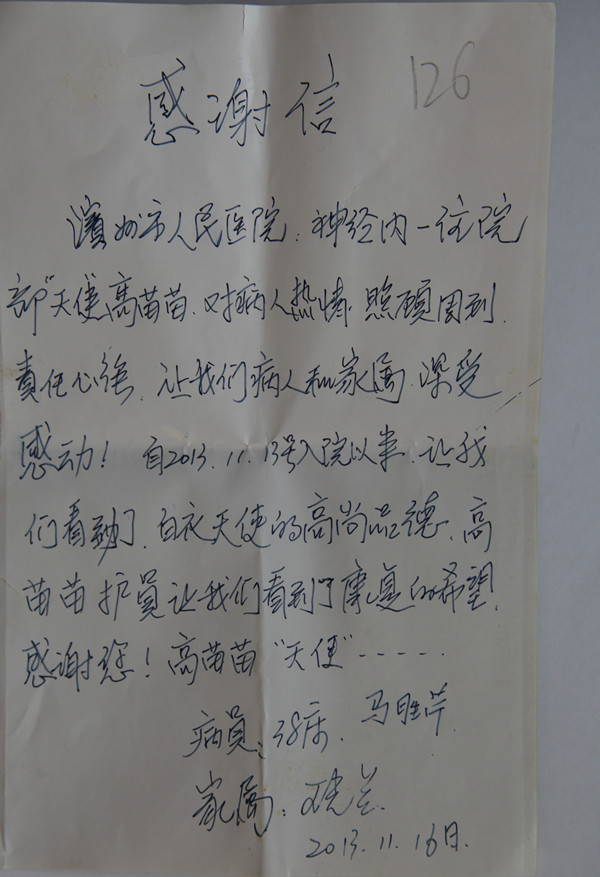 感谢信
126
滨州市人民医院:神经内一住院
部"天使高苗苗.对病人热情.照顾周到.
责任心强.让我们病人和家属.深受
感动! 自2013.11.13号入院以来.让我
们看到了.白衣天使的高尚品德.高
苗苗护员让我们看到了康复的希望.
感谢您!高苗苗"天使"-----
病员:38床.马胜芹
家属:
2013.11.16日.